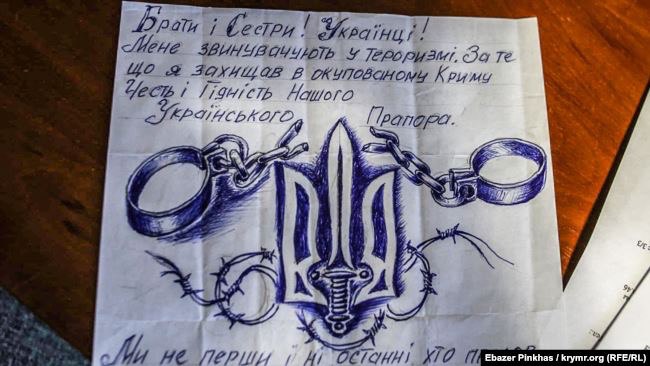 Брати і Сестри! Українці!
Мене звинувачують у тероризмі. За те
що я захищав в окупованому Криму
Честь і Гідність Нашого
Українського Прапора.
Ми не перши ї ні останні хто
Ebazer Pinkhas / krymr.org (RFE/RL)